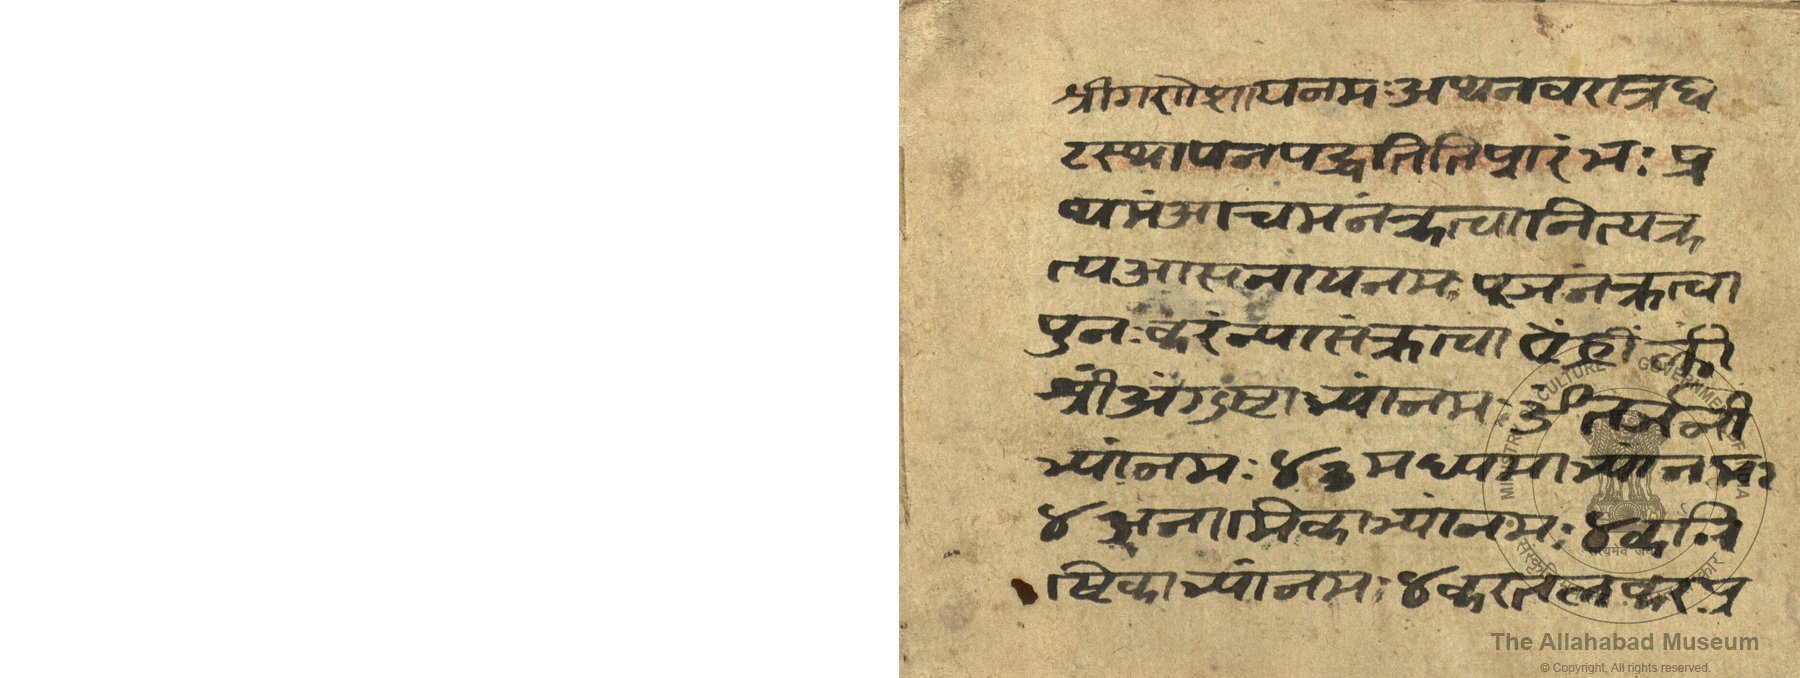 श्रीगणेशायनमः अथनवरात्रघ
टस्थापनपद्धतितिप्रारंभः प्र
थमंआचमनंकृत्वानित्यकृ
त्यआसनायनमः पूजनंकृत्वा
पुनः करंन्यासंकृत्वा ऐंह्रीं क्लीं
श्रीं अंगुष्टाभ्यांनमः तर्जनी
भ्यांनमः ४ मध्यमाभ्यांनमः
४ अनामिकाभ्यांनमः ४ कनि
ष्टिकाभ्यांनमः ४ करतलकरप्र
MINISTRY CULTURE GOVERNMENT OF INDIA
सत्यमेव जयते
The Allahabad Museum
© Copyright, All rights reserved.